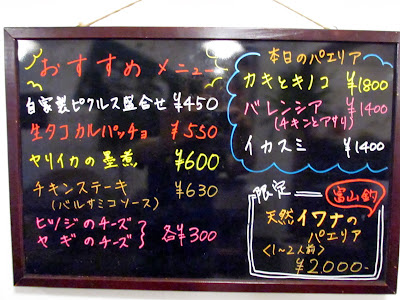 おすすめ メニュー
自家製ピクルス盛合せ ¥450
生タコカルパッチョ ¥550
ヤリイカの墨煮 ¥600
チキンステーキ ¥630
(バルサミコソース)
ヒツジのチーズ
ヤギのチーズ } 各¥300
本日のパエリア
カキとキノコ ¥1800
バレンシア ¥1400
(チキンとアサリ)
イカスミ ¥1400
限定 富山釣
天然イワナの
パエリア
<1~2人前>
¥2,000-